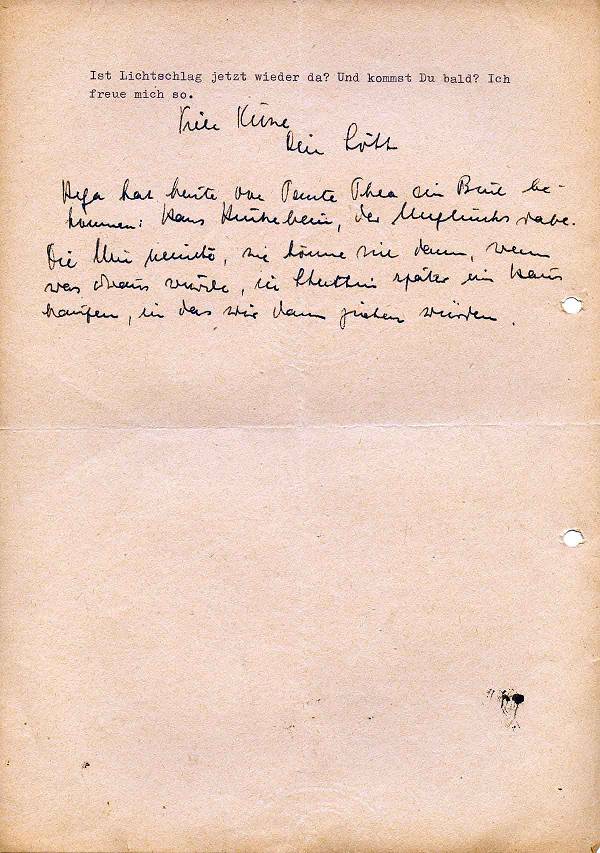 Ist Lichtschlag jetzt wieder da? Und kommst Du bald? Ich
freue mich so.
Viele Küsse
Dein
hat heute von Tante Thea ein Buch be-
kommen: Hans Huckebein, der Unglücksrabe.
Die meinte, sie könne sie dann, wenn
was draus würde, in später ein Haus
kaufen, in das wir dann ziehen würden.